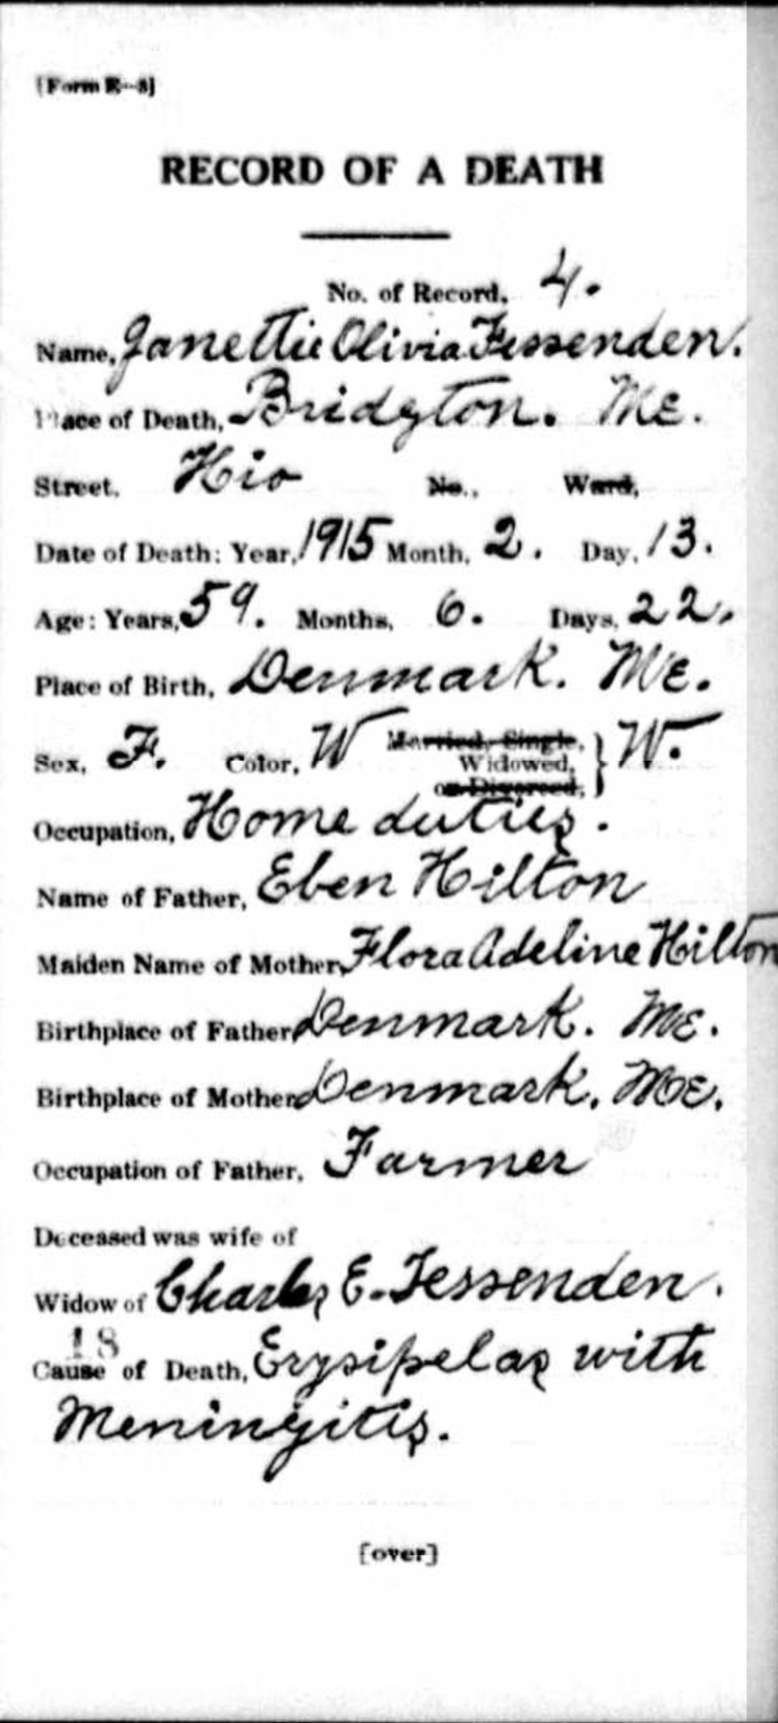 [Form R—8]
RECORD OF A DEATH
No. of Record, 4.
Name, Janettie Olivia Fessenden.
Place of Death, Bridgton. Me.
Street, Hio No., Ward,
Date of Death: Year, 1915 Month, 2. Day, 13.
Age: Years, 59. Months, 6. Days, 22.
Place of Birth, Denmark. Me.
Married, Single,
Sex, F. Color, W Widowed, } W.
or Divorced,
Occupation, Home duties.
Name of Father, Eben Hilton
Maiden Name of Mother, Flora Adeline Hilton
Birthplace of Father, Denmark. Me.
Birthplace of Mother, Denmark, Me.
Occupation of Father, Farmer
Deceased was wife of
Widow of Charles E. Fessenden.
18
Cause of Death, Erysipelas with
Meningitis.
[over]